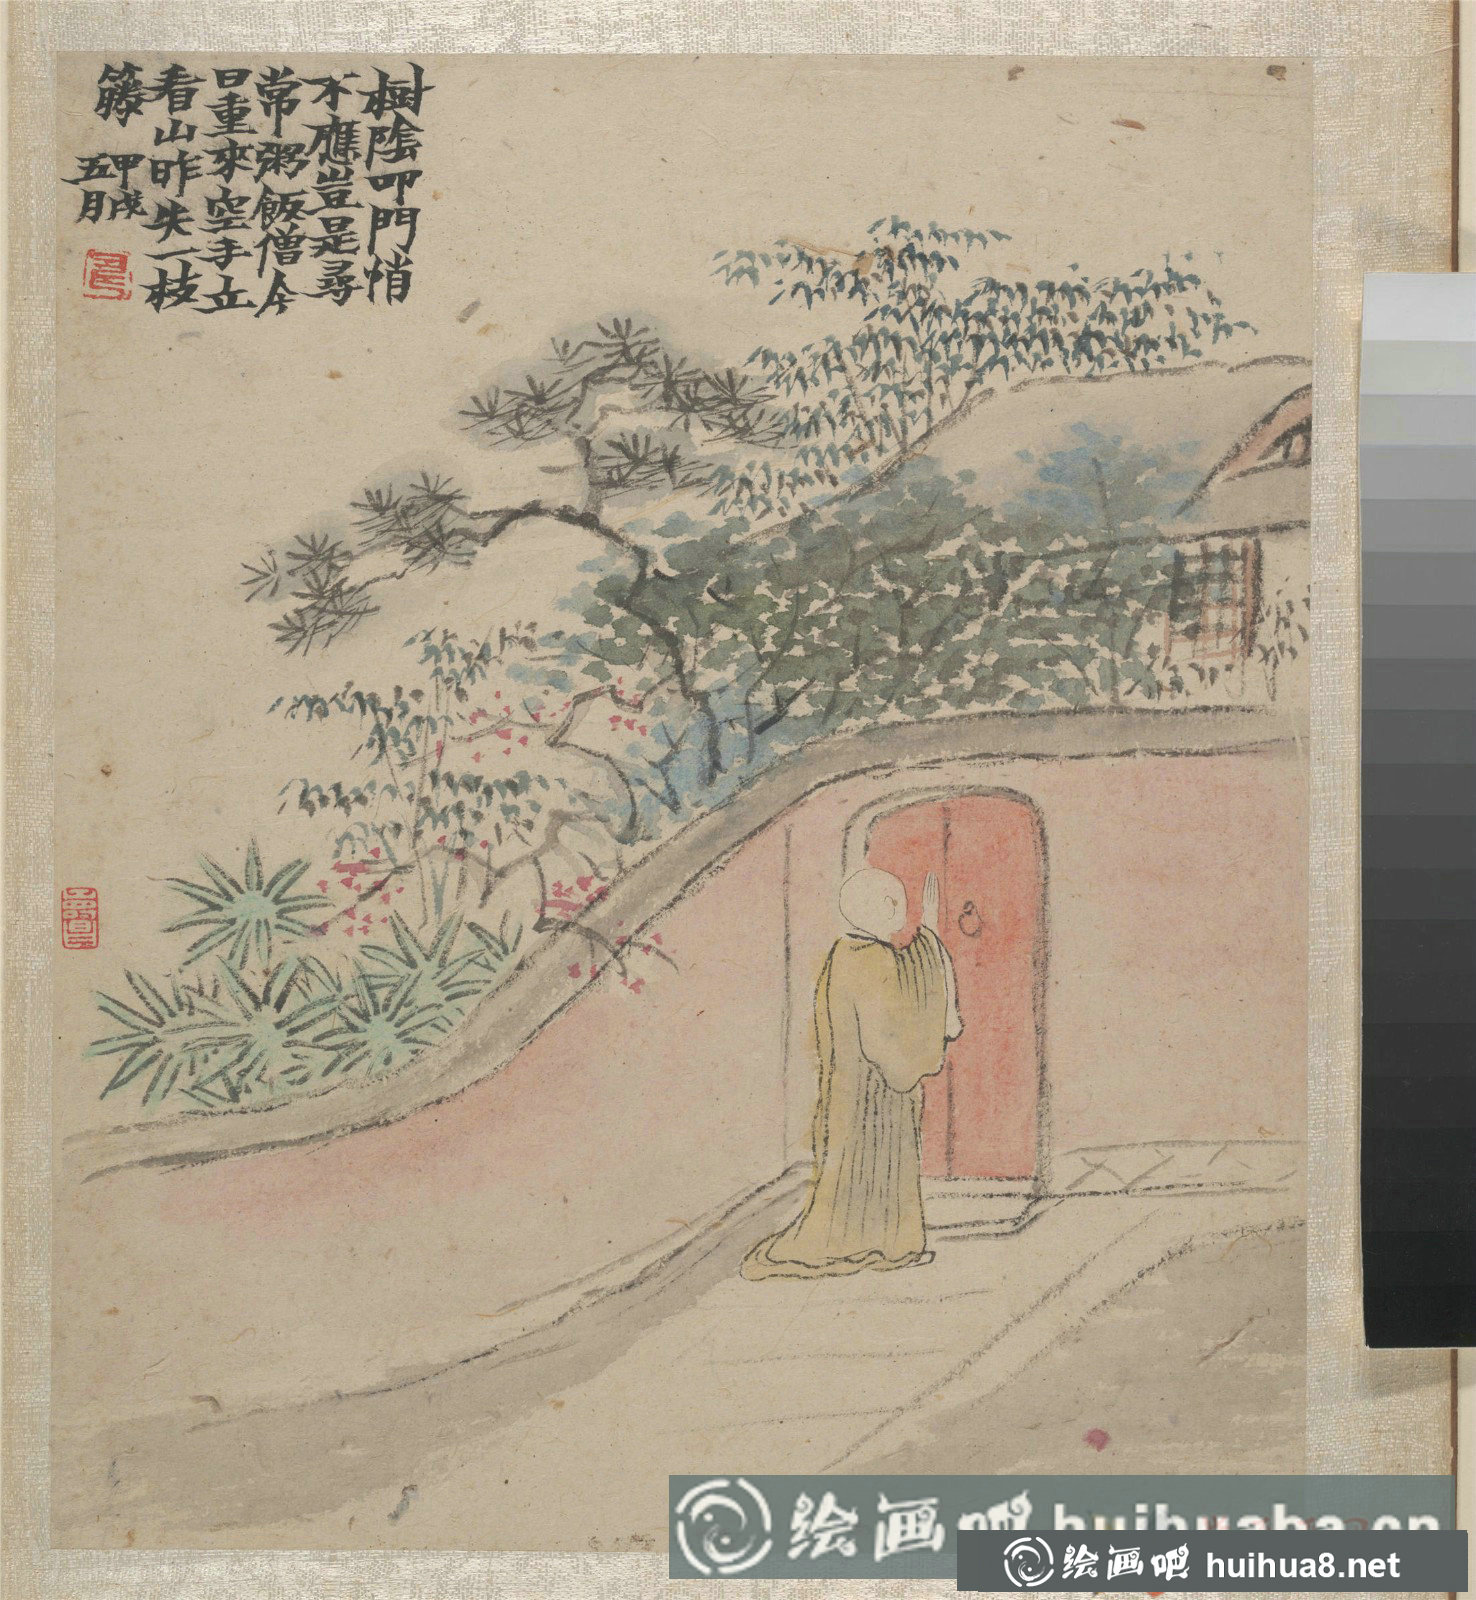 樹陰叩門悄
不應豈是尋
常粥飯僧今
日重來空手立
看山昨失一枝
籐
甲戌
五月
绘画吧 huihuaba.cn
绘画吧 huihua8.net